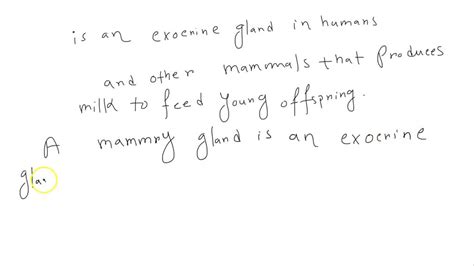 is an exocrine gland in humans
and other mammals that produces
milk to feed young offspring.
A mammry gland is an exocrine
gla